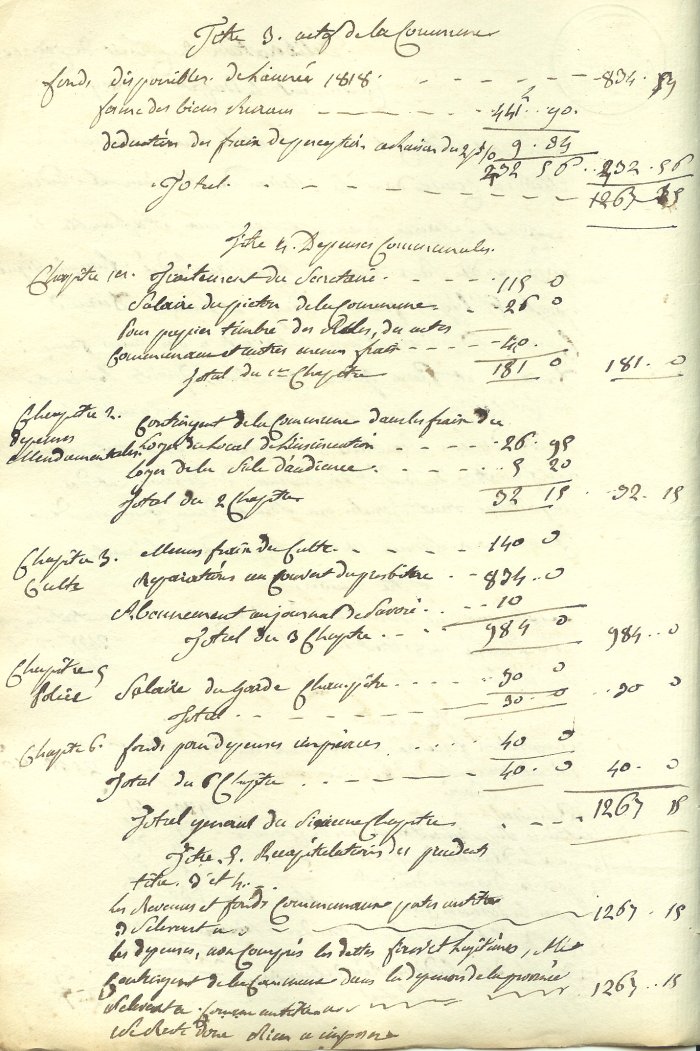 Titre 3. actif de la Commune
fonds disponibles de l'année 1818 - - - - - 834.
ferme des biens ruraux - - - - 441. 90.
déduction des frais de perception a raison du 2 p% 9. 34
Total. - - - - 432 56 432. 56
1267
Titre 4. Depenses Communales.
Chapitre 1er. Traitement du Secretaire. - - - 115 0
Salaire du pieton de la Commune - 26 0
Pour papier timbré des Rôles, des actes
Communaux et autres menus frais - - - 40.
Total du 1er Chapitre 181 0 181. 0
Chapitre 2. Contingent de la Commune dans les frais du
depenses
mandamentales Loyer du local de l'insinuation - - - 26. 95
Loyer de la Sale d'audience. - - - 5 20
Total du 2 Chapitre 32 15 . 32. 15
Chapitre 3. Menus frais du Culte. - - - 140 0
Culte Reparations au couvert du presbitere . - 834..0
Abonnement au journal de Savoie. - - 10
Total du 3 Chapitre. - - - 984 0 984..0
Chapitre 5
Police Salaire du Garde Champêtre - - - - 30 0
Total - - - - 30. 0 30 0
Chapitre 6. fonds pour depenses imprévues . . . . 40 0
Total du 6 Chapitre - - - - 40. 0 40. 0
Total general du Sixieme Chapitre . - - - 1267 15
Titre. 5. Recapitulations des precedents
titre. 3 et 4.
Les Revenus et fonds Communaux portes au titre
3 s'elevent a 1267. 15
Les depenses, non Compris les dettes
Contingent de la Commune dans les depenses de la province
s'elevent a comme au titre 1267..15
Il ne Reste donc Rien a imposer